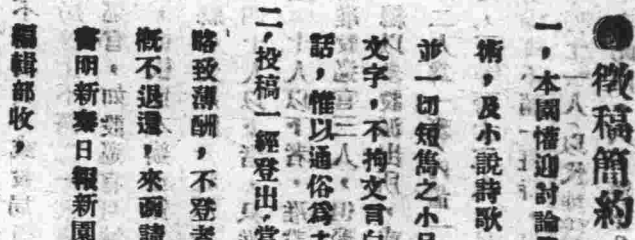 ●徵稿簡約
一，本園懽迎討論
術，及小説詩歌
並一切短雋之小品
文字，不拘文言白
話，惟以通俗爲主
二，投稿一經登出，當
略致薄酬，不登者
概不退還，來函請
書明新秦日報新園
編輯部收，